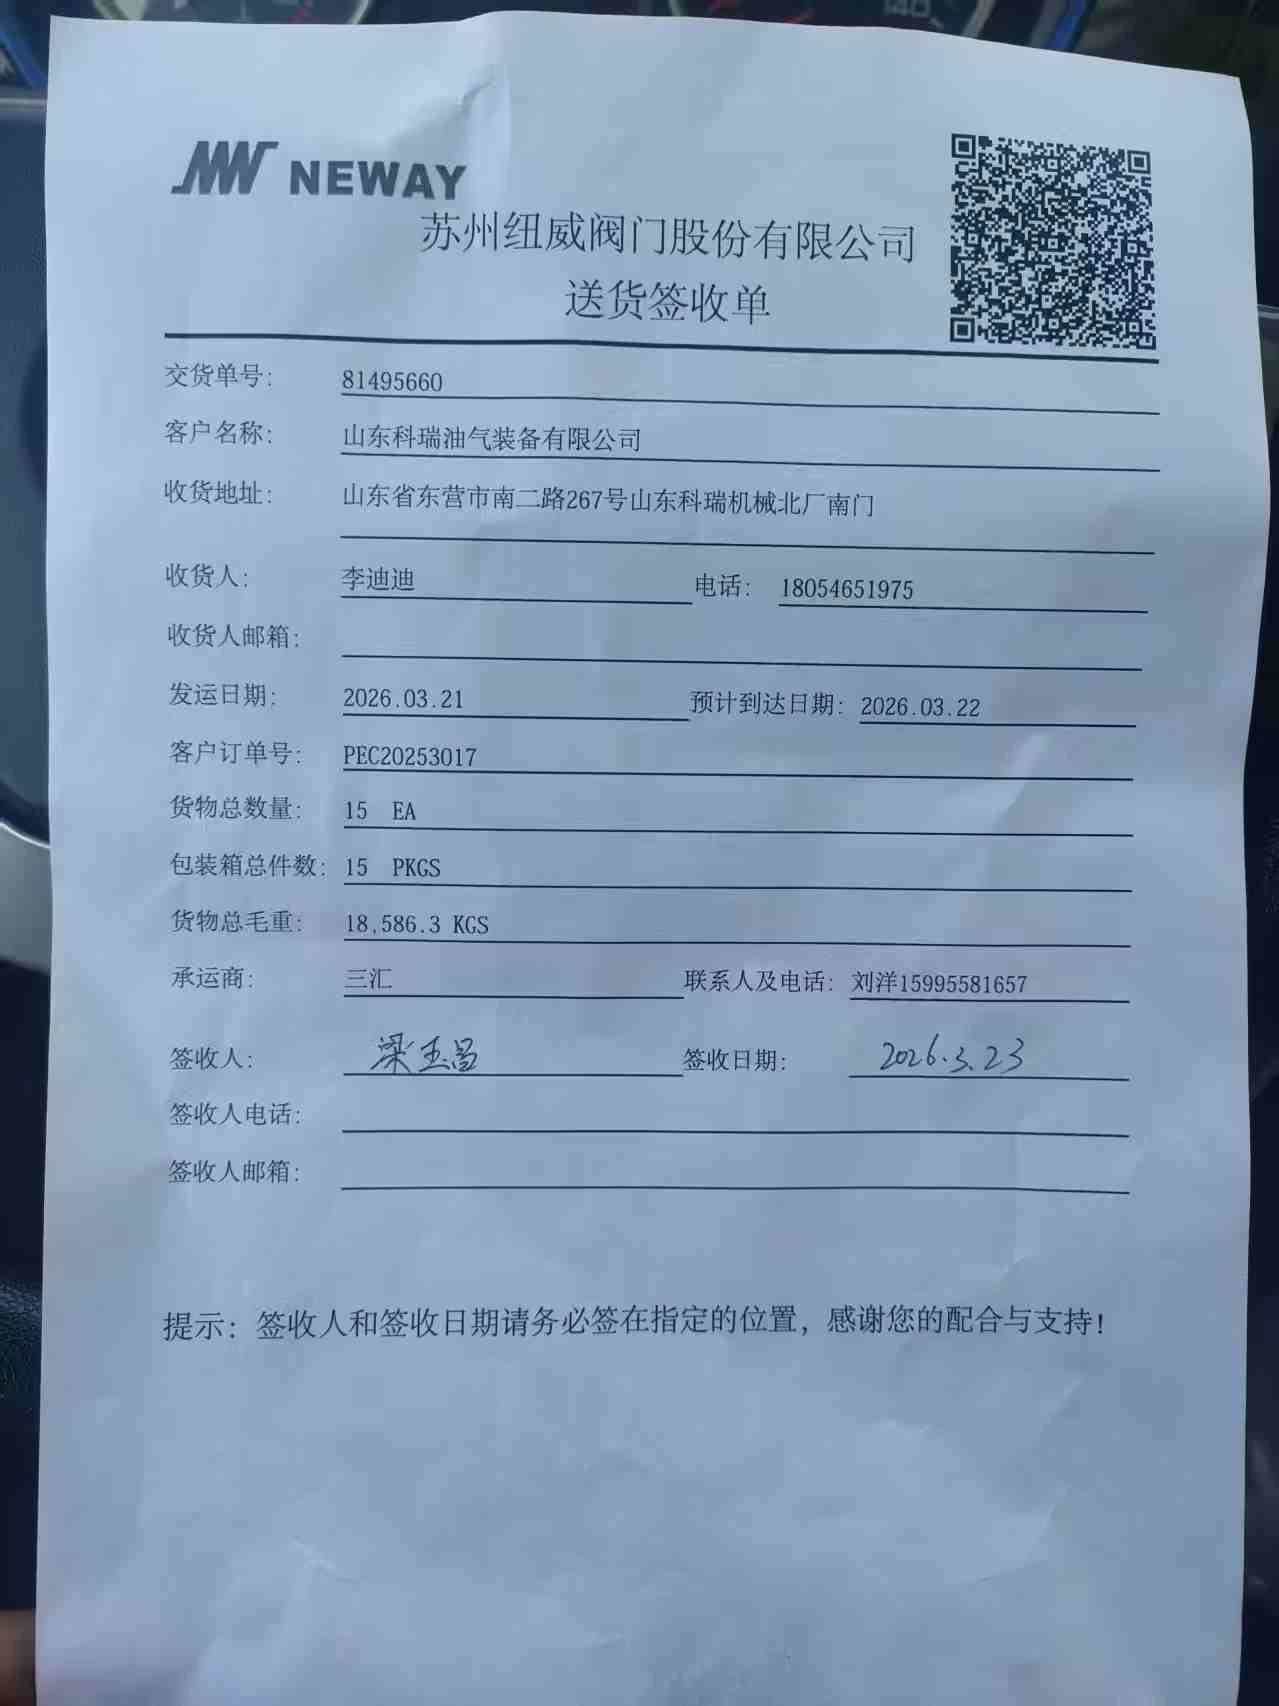 NEWAY
苏州纽威阀门股份有限公司
送货签收单
交货单号: 81495660
客户名称: 山东科瑞油气装备有限公司
收货地址: 山东省东营市南二路267号山东科瑞机械北厂南门
收货人: 李迪迪 电话: 18054651975
收货人邮箱:
发运日期: 2026.03.21 预计到达日期: 2026.03.22
客户订单号: PEC20253017
货物总数量: 15 EA
包装箱总件数: 15 PKGS
货物总毛重: 18,586.3 KGS
承运商: 三汇 联系人及电话: 刘洋15995581657
签收人: 梁玉昌 签收日期: 2026.3.23
签收人电话:
签收人邮箱:
提示: 签收人和签收日期请务必签在指定的位置, 感谢您的配合与支持!